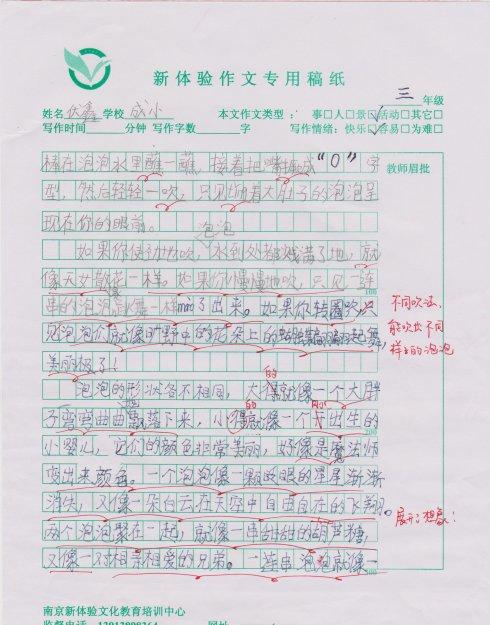 新体验作文专用稿纸
三 年级
姓名 伏鑫 学校 成小 本文作文类型： 事□人□景□活动□其它□
写作时间 分钟 写作字数 字 写作情绪：快乐□容易□为难□
棒在泡泡水里蘸一蘸，接着把嘴 成“O”字 教师眉批
型，然后轻轻一吹，只见 着大肚子的泡泡呈
现在你的眼前。 泡泡
如果你使劲地吹， 到处都 满了地，就
像天女散花一样。如果你慢慢地吹，只见一连
串的泡泡 舞一样 了出来。如果你转圈吹，只
100
见泡泡们就像旷野中的花朵上的 翩翩起舞，
美丽极了！
不同吹法，
能吹出不同
样子的泡泡
泡泡的形状各不相同，大的就像一个大胖
子弯弯曲曲地飘落下来，小的就像一个刚出生的
200
小婴儿，它们的颜色非常美丽，好像是魔法师
变出来颜色。一个泡泡像一颗 眼的星星渐渐
消失，又像一朵白云在天空中自由自在的飞翔。
展开了想象！
两个泡泡聚在一起，就像一串甜甜的葫芦糖，
又像一对相亲相爱的兄弟。一连串泡泡就像一
300
南京新体验文化教育培训中心